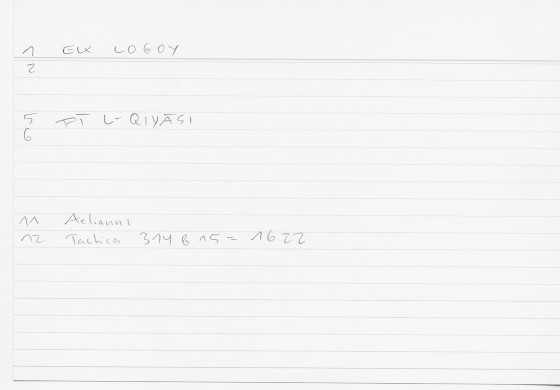 1 EUX LOGOY
2
5 FĪ L-QIYĀSI
6
11 Aelianus
12 Tactica 314 B 15 = 16.22